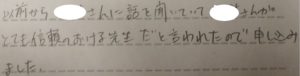 以前から さんに話を聞いていて さんが
とても信頼のおける先生だと言われたので申し込み
ました。